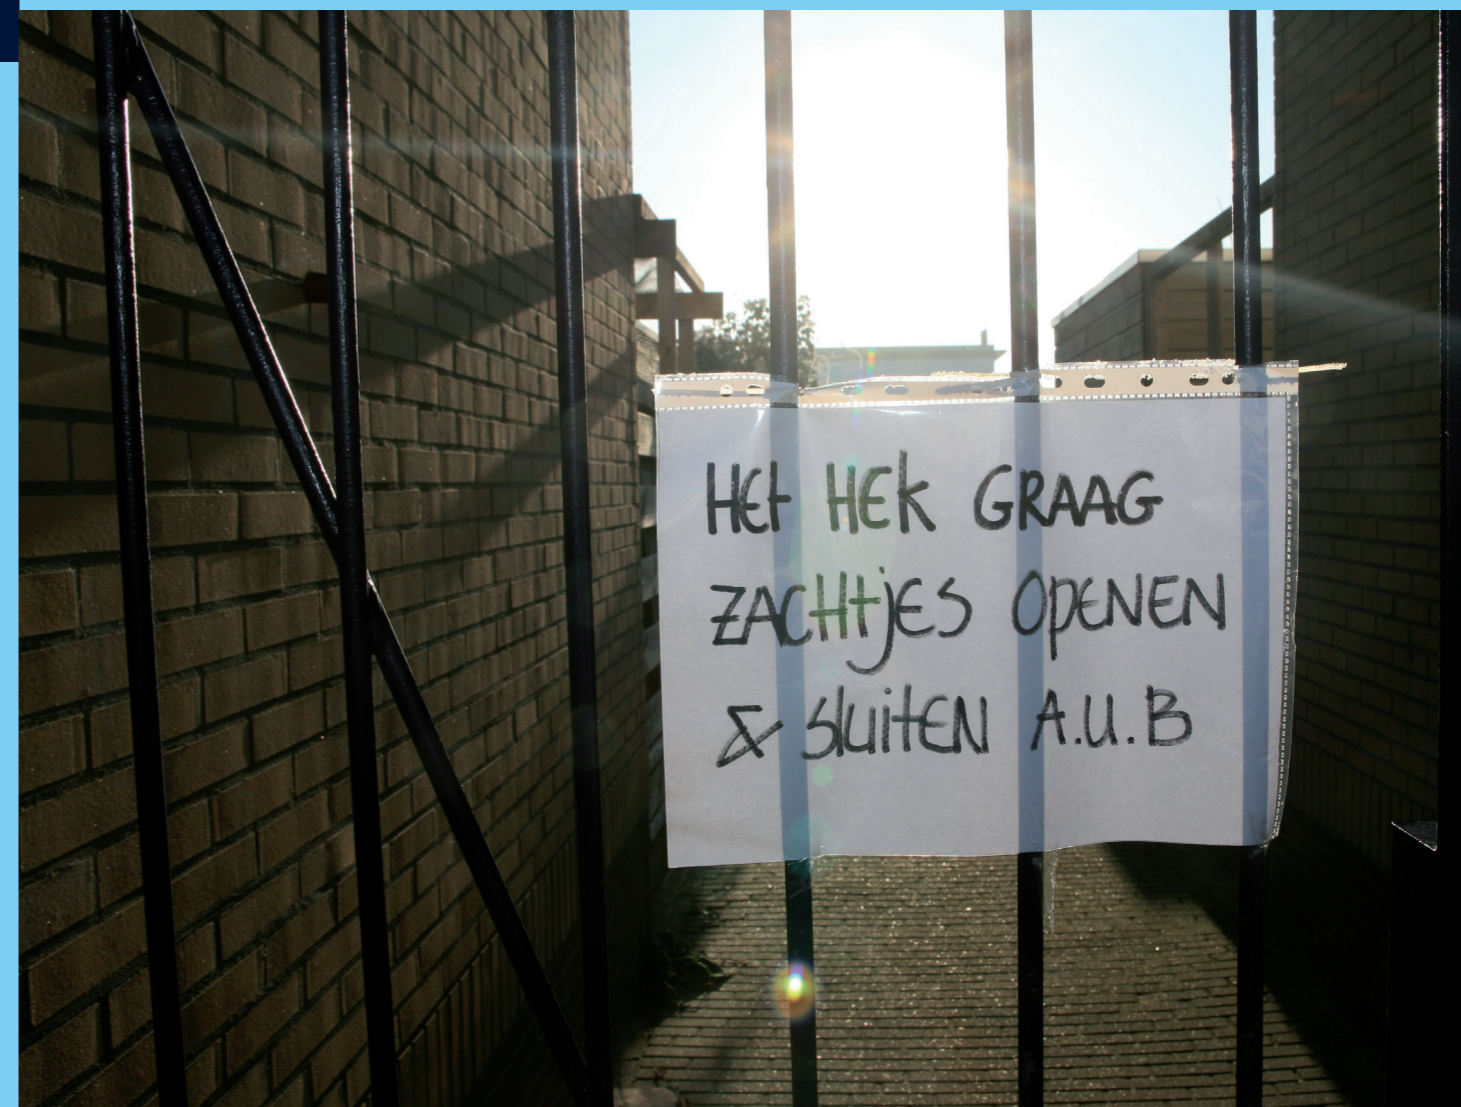 HEt HEK GRAAG
ZACHtjES OPENEN
& sluitEN A.U.B